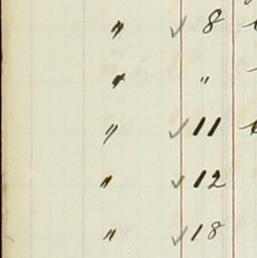 " ✓ 8
" "
" ✓ 11
" ✓ 12
" ✓ 18